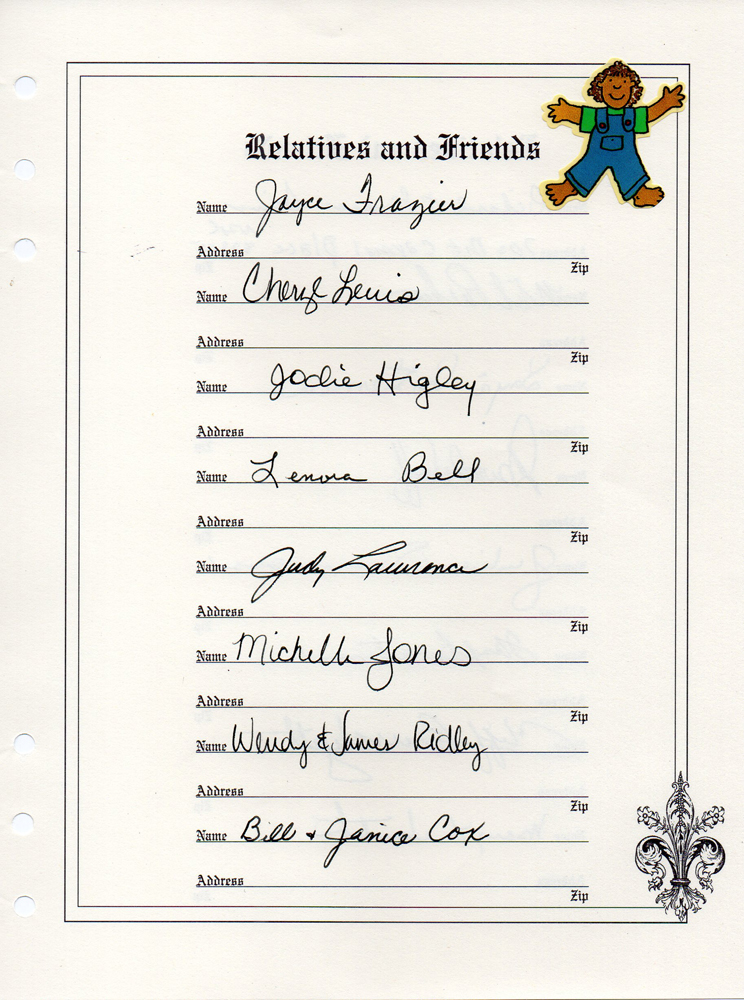 Relatives and Friends
Name Jayce Frazier
Address
Zip
Name Cheryl Lewis
Address
Zip
Name Jodie Higley
Address
Zip
Name Lenora Bell
Address
Zip
Name Judy Lawrence
Address
Zip
Name Michelle Jones
Address
Zip
Name Wendy & James Ridley
Address
Zip
Name Bill + Janice Cox
Address
Zip